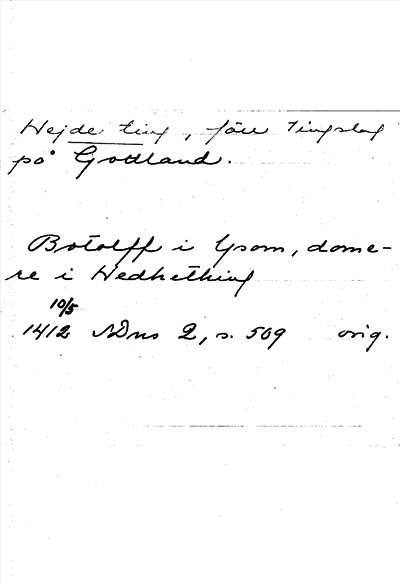 Hejde ting, förr tingslag
på Gottland.
Botolff i Ysom, doma-
re i Hedhething
10/5
1412 SDns 2, s. 509 orig.